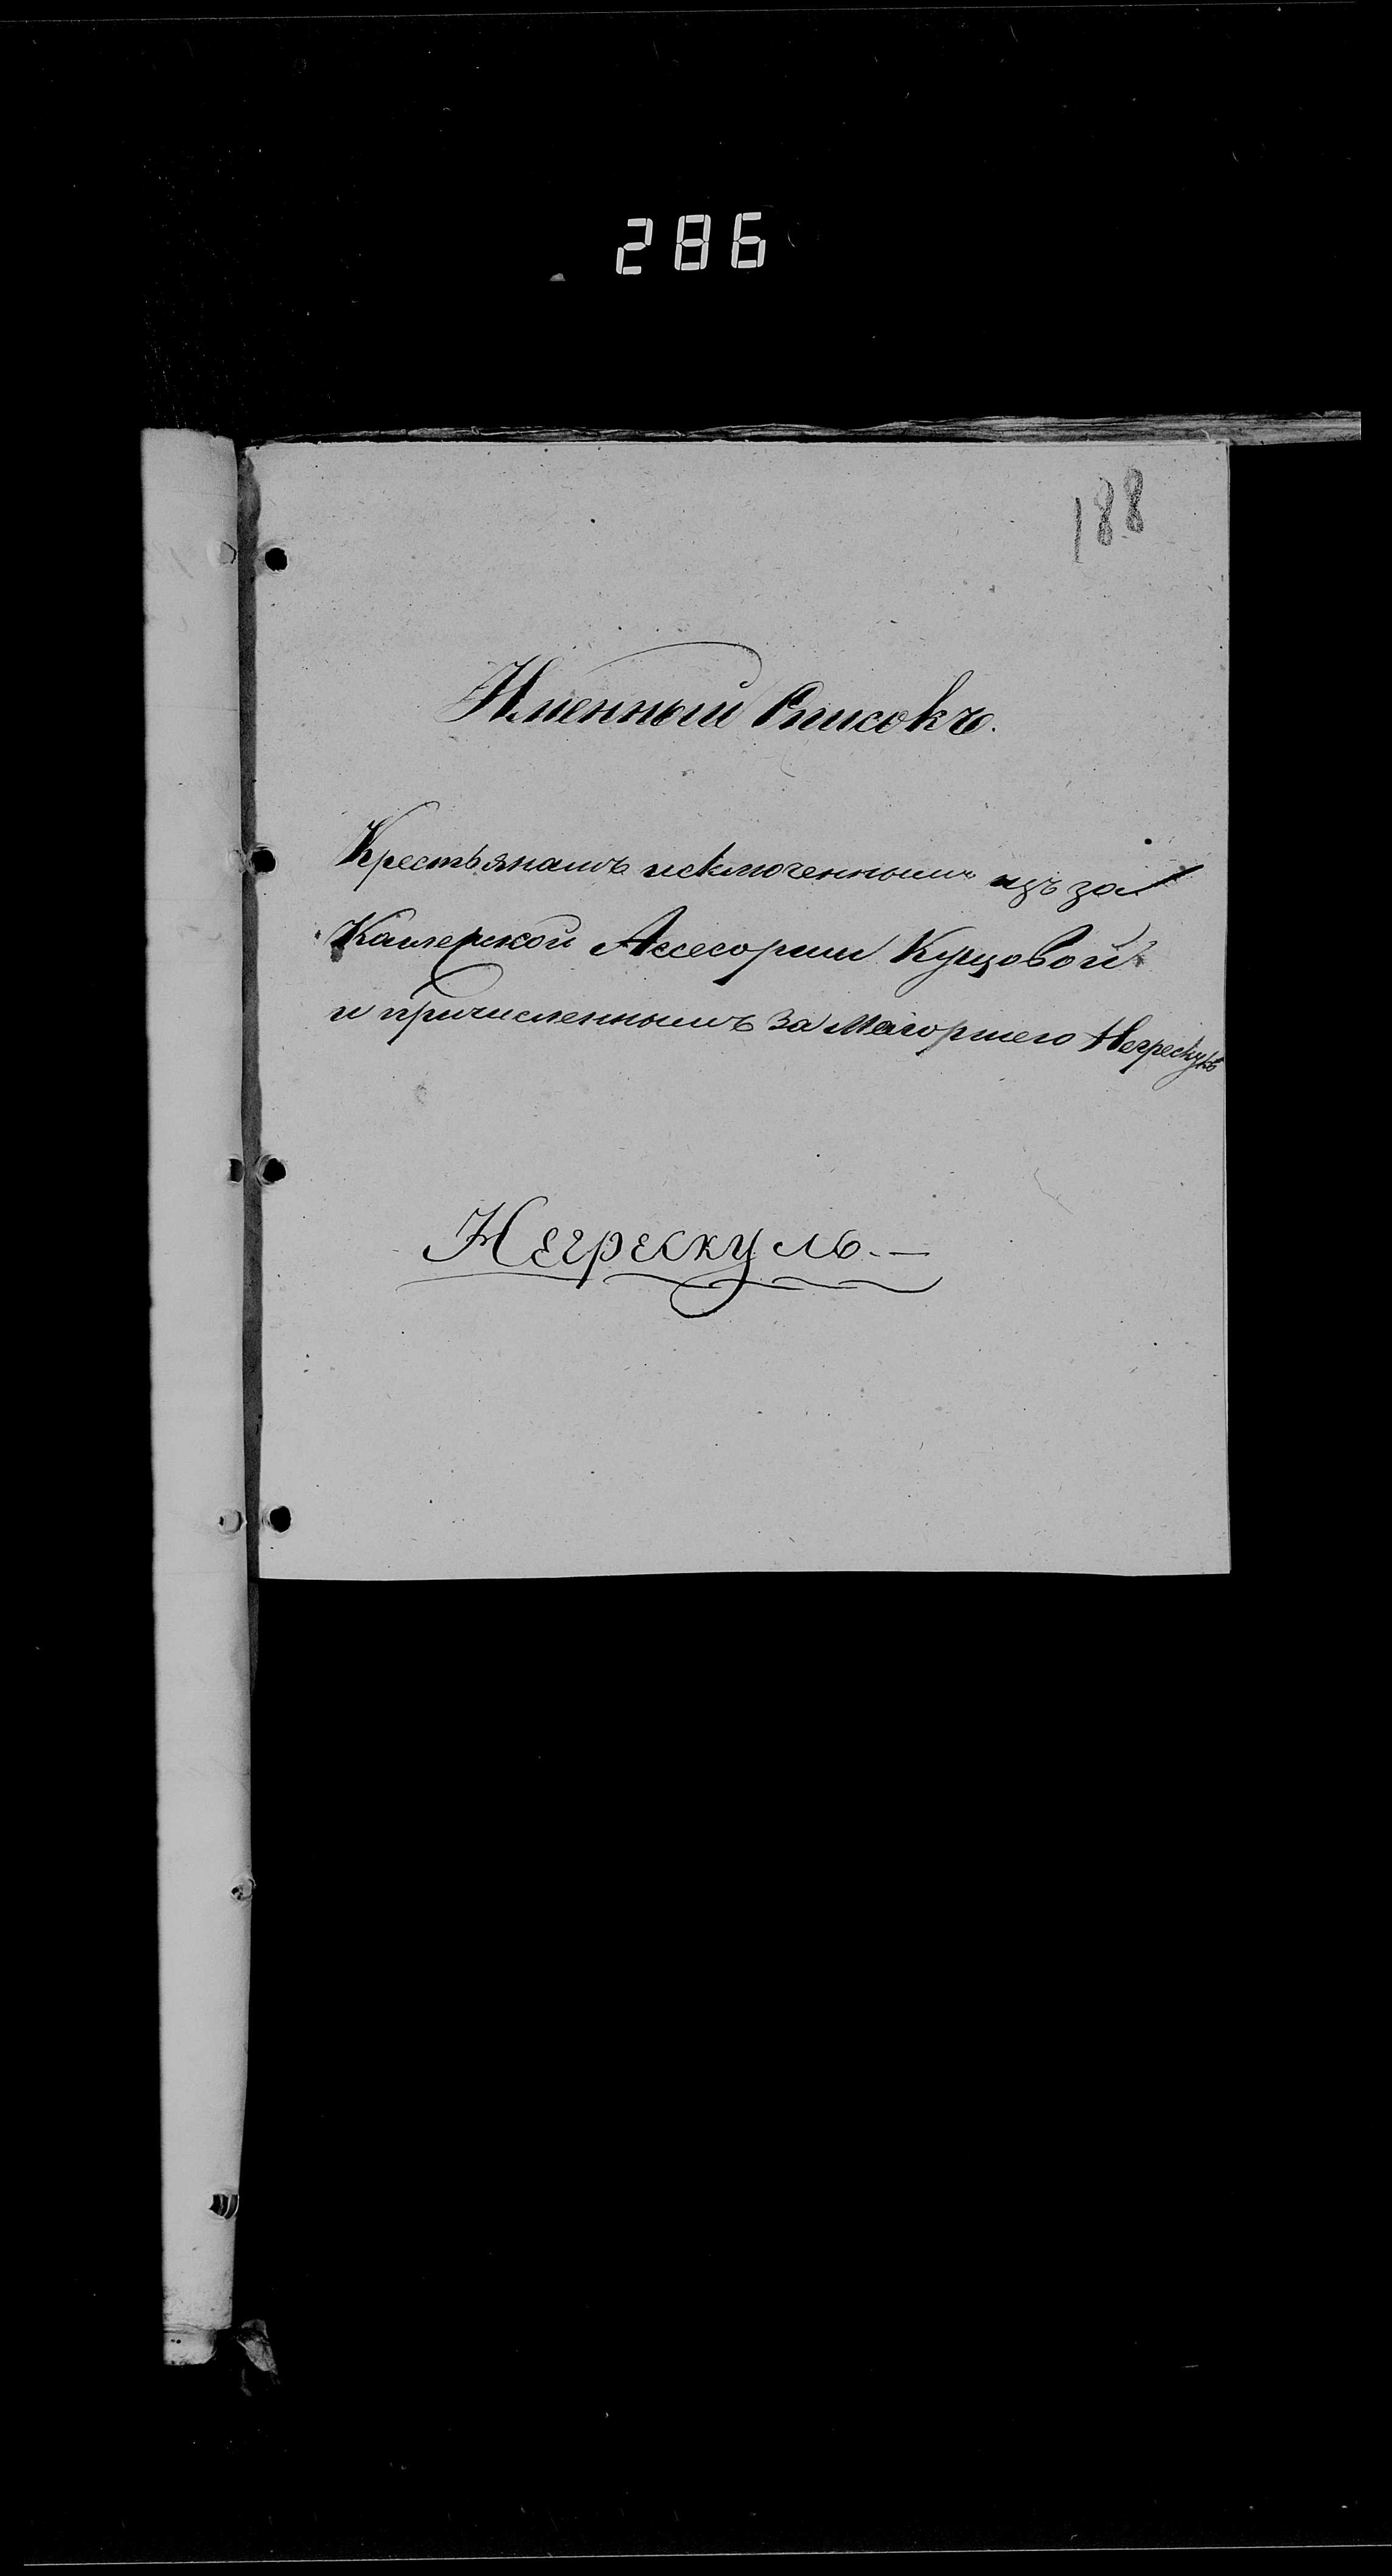 286
188
Именный Списокъ.
Крестьянамъ исключеннымъ изъ за
Камерской Ассесорши Кунцовой
и причисленнымъ за Маіоршею Негрескулъ
Негрескулъ. —